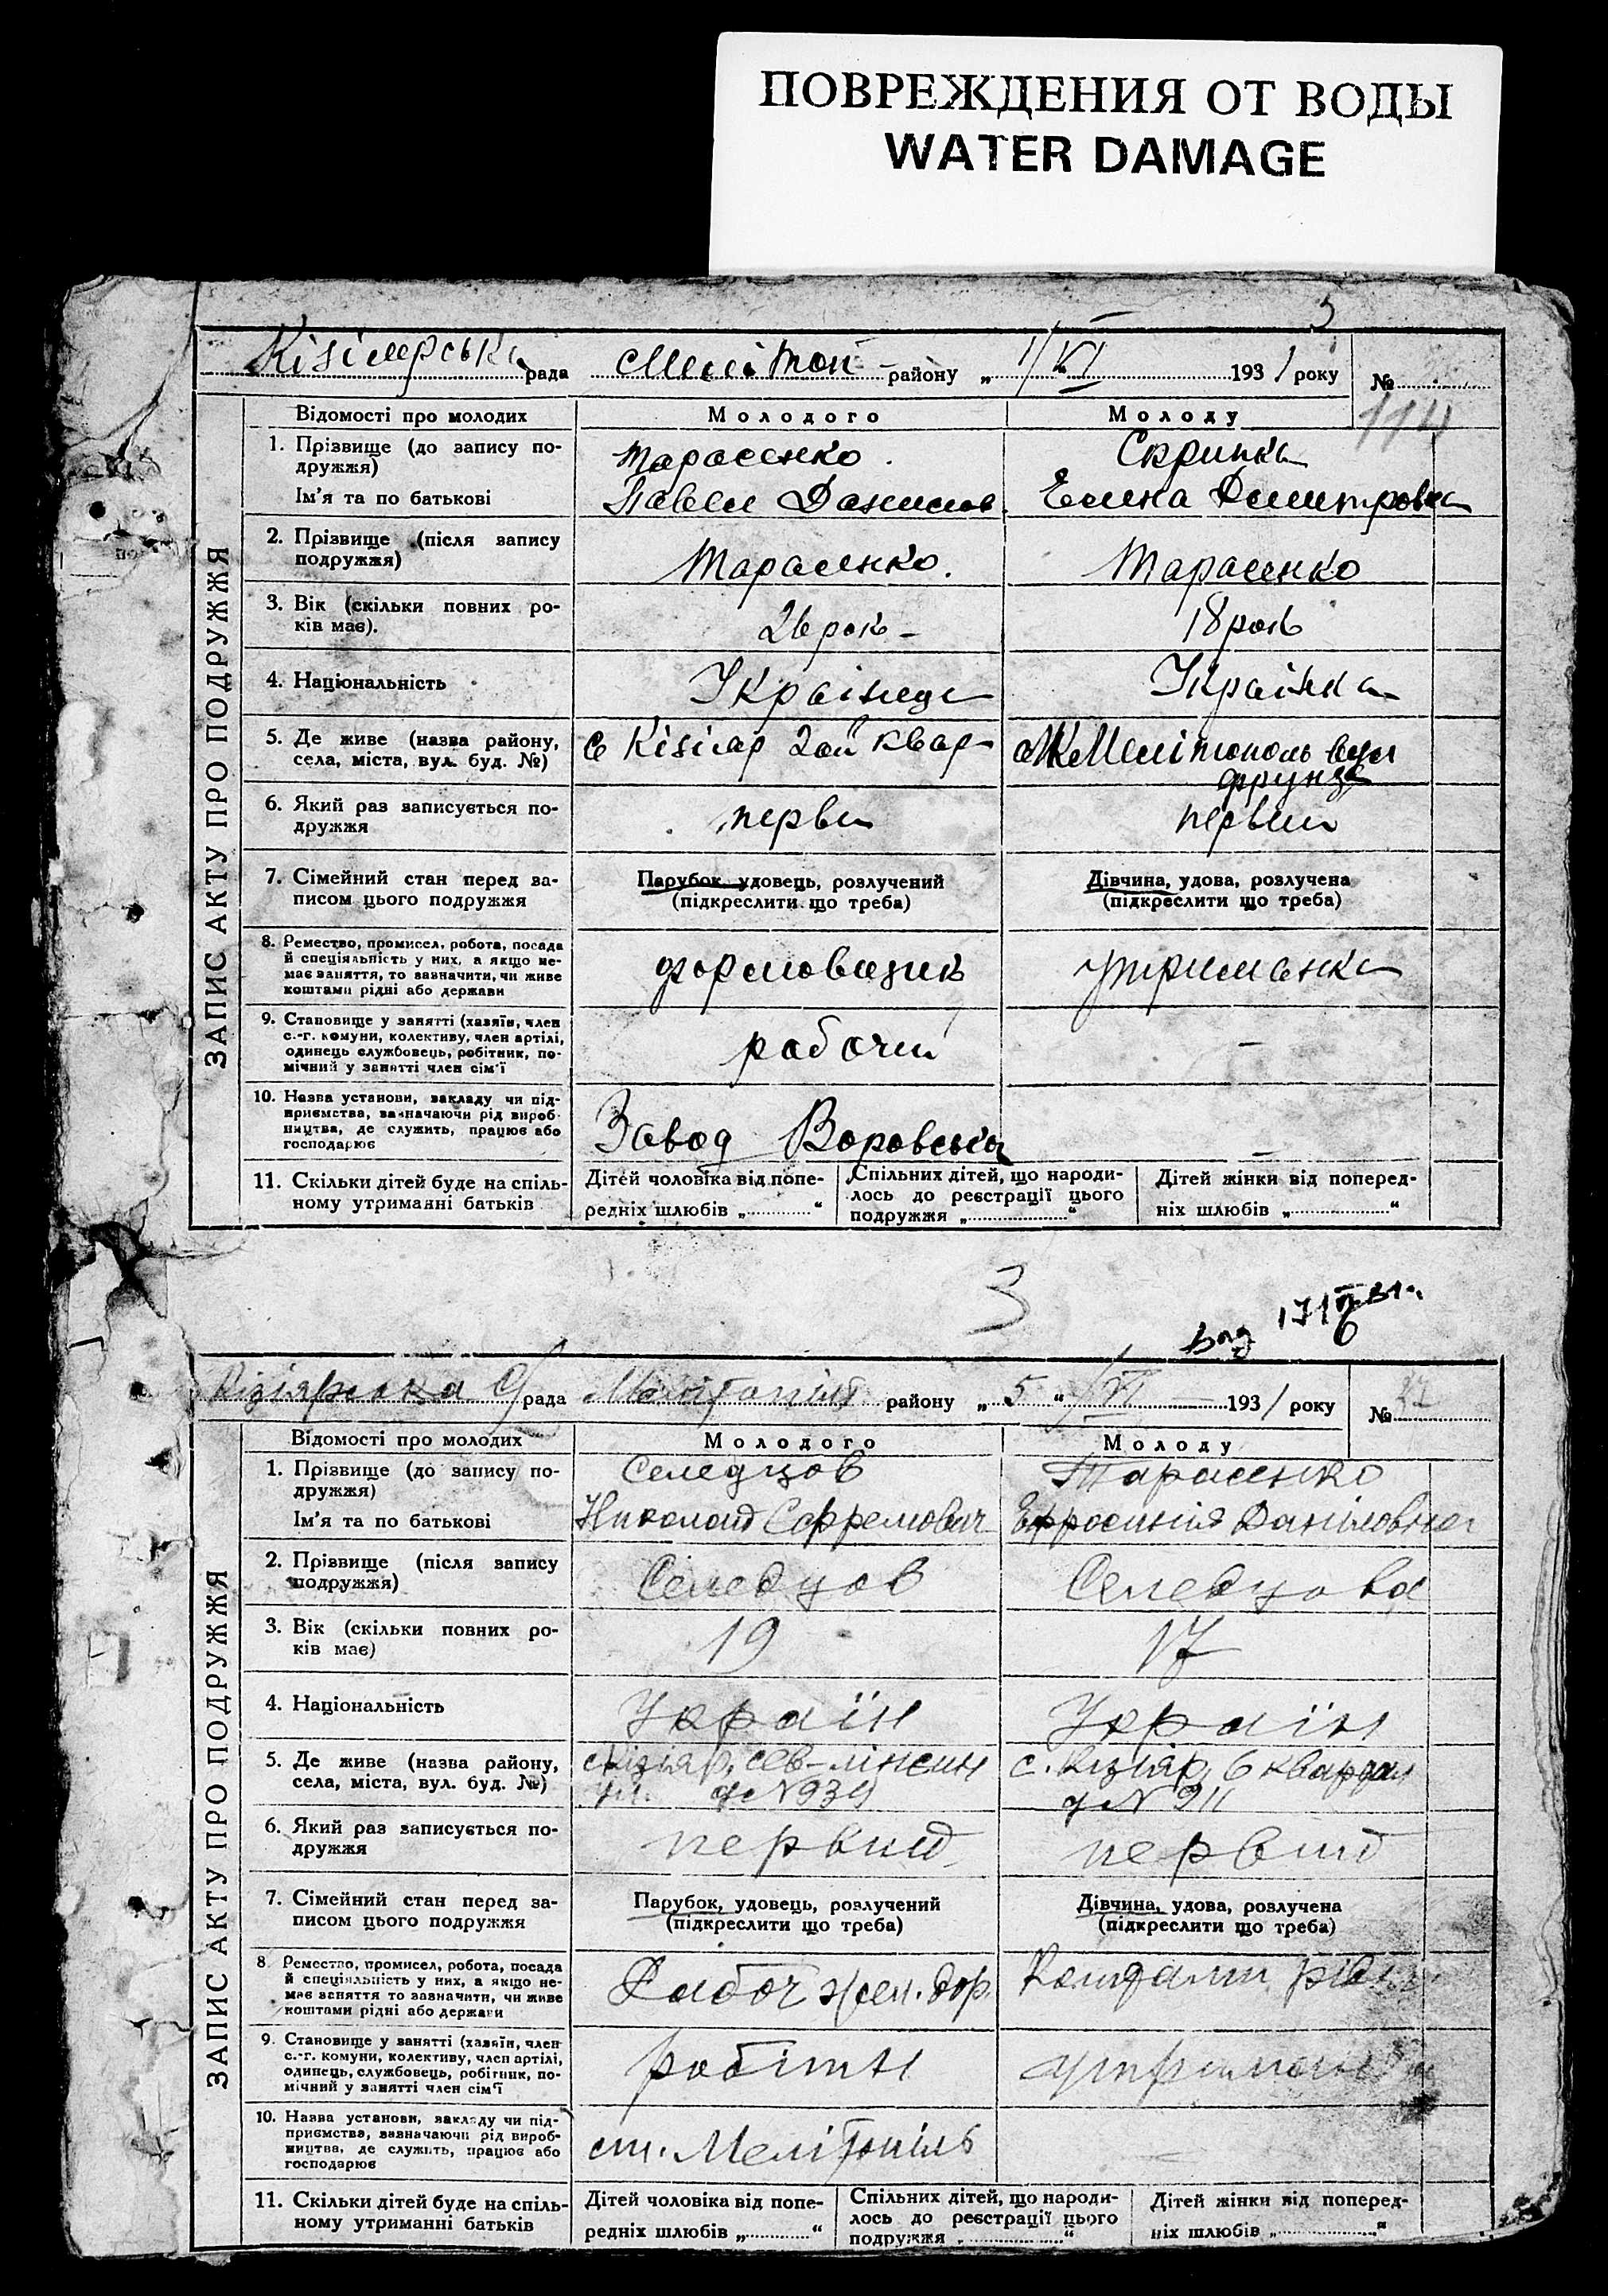 ПОВРЕЖДЕНИЯ ОТ ВОДЫ
WATER DAMAGE
3
рада Меліто району „ 1/VI 1931 року №
114
ЗАПИС АКТУ ПРО ПОДРУЖЖЯ
Відомості про молодих Молодого Молоду
1. Прізвище (до запису по-
дружжя) Тарасенко Скрипка
Ім'я та по батькові Павел Данилов Елена Дмитровна
2. Прізвище (після запису
подружжя) Тарасенко. Тарасенко
3. Вік (скільки повних ро-
ків має). 26 рок 18 рок
4. Національність Українец Українка
5. Де живе (назва району,
села, міста, вул. буд. №) с Кізіяр 2ой квар Мелітополь вул
фрунзе
6. Який раз записується по-
дружжя перви первий
7. Сімейний стан перед за-
писом цього подружжя
Парубок, удовець, розлучений
(підкреслити що треба)
Дівчина, удова, розлучена
(підкреслити що треба)
8. Ремество, промисел, робота, посада
й спеціяльність у них, а якщо не-
має заняття, то зазначити, чи живе
коштами рідні або держави
формовщик утриманка
9. Становище у занятті (хазяїн, член
с.-г. комуни, колективу, член артілі,
одинець службовець, робітник, по-
мічний у занятті член сім'ї
рабочий —
10. Назва установи, закладу чи під-
приємства, зазначаючи рід вироб-
ництва, де служить, працює або
господарює
Завод Воровська —
11. Скільки дітей буде на спіль-
ному утриманні батьків
Дітей чоловіка від попе-
редніх шлюбів „ “
Спільних дітей, що народи-
лось до реєстрації цього
подружжя „ “
Дітей жінки від поперед-
ніх шлюбів „ “
3
Кізіярська с/рада району „ 5 “ VI 1931 року № 37
ЗАПИС АКТУ ПРО ПОДРУЖЖЯ
Відомості про молодих Молодого Молоду
1. Прізвище (до запису по-
дружжя) Селедцов Тарасенко
Ім'я та по батькові Николай Ефросинія Даніловна
2. Прізвище (після запису
подружжя) Селедцов Селедцова
3. Вік (скільки повних ро-
ків має) 19 17
4. Національність Україн Україн
5. Де живе (назва району,
села, міста, вул. буд. №) с Кізіяр, сев-лінєин с. Кізіяр, 6 квартал
ул. д N 934 д N 911
6. Який раз записується по-
дружжя первий первий
7. Сімейний стан перед за-
писом цього подружжя
Парубок, удовець, розлучений
(підкреслити що треба)
Дівчина, удова, розлучена
(підкреслити що треба)
8. Ремество, промисел, робота, посада
й спеціяльність у них, а якщо не-
має заняття то зазначити, чи живе
коштами рідні або держави
Рабоч жел. дор. Коштами рідн
9. Становище у занятті (хазяїн, член
с.-г. комуни, колективу, член артілі,
одинець, службовець, робітник, по-
мічний у занятті член сім'ї
робітн утриманка
10. Назва установи, закладу чи під-
приємства, зазначаючи рід вироб-
ництва, де служить, працює або
господарює
ст. Мелітопіль
11. Скільки дітей буде на спіль-
ному утриманні батьків
Дітей чоловіка від попе-
редніх шлюбів „ “
Спільних дітей, що народи-
лось до реєстрації цього
подружжя „ “
Дітей жінки від поперед-
ніх шлюбів „ “